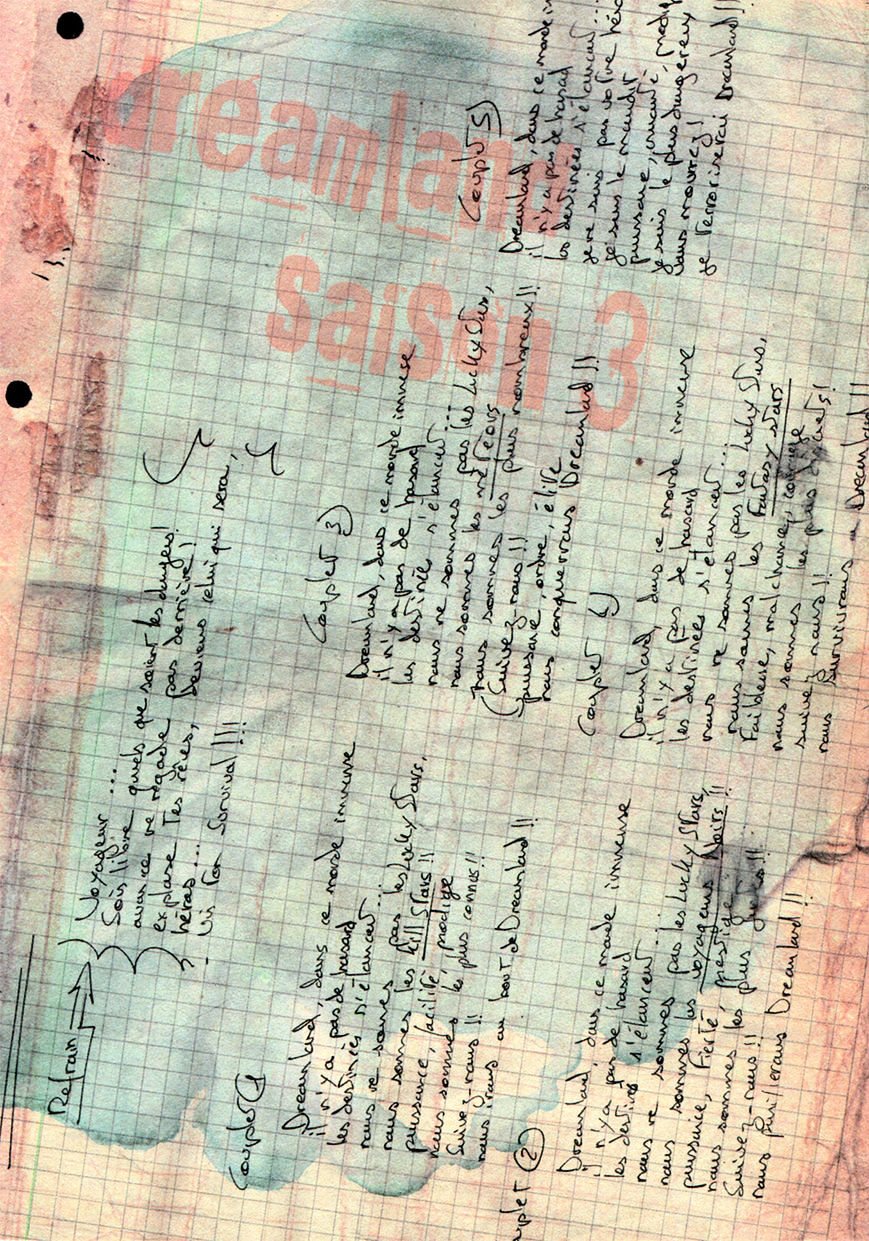 dreamland
saison 3
Refrain
Voyageur ...
Sois libre quels que soient les dangers!
avance ne regarde pas derrière!
explose tes rêves, Deviens celui qui sera,
héros...
- Vis ton Survival!!!
Couplet 1
Dreamland, dans ce monde immense
il n'y a pas de hasard
les destinées s'élancent...
nous ne sommes pas les Lucky Stars,
nous sommes les Kill Stars!!
puissance, facilité, prodige
nous sommes les plus connus!!
Suivez-nous!!
nous irons au bout de Dreamland!!
Couplet 2
Dreamland, dans ce monde immense
il n'y a pas de hasard
les destinées s'élancent...
nous ne sommes pas les Lucky Stars,
nous sommes les voyageurs Noirs!!
puissance, Fierté, prestige
nous sommes les plus
Suivez-nous!!
nous Dreamland!!
Couplet 3
Dreamland, dans ce monde immense
il n'y a pas de hasard
les destinées s'élancent...
nous ne sommes pas les Lucky Stars,
nous sommes les
nous sommes les plus nombreux!!
(Suivez-nous!!
puissance, ordre, élite
nous conquerrons Dreamland!!
Couplet 4
Dreamland, dans ce monde immense
il n'y a pas de hasard
les destinées s'élancent...
nous ne sommes pas les Lucky Stars,
nous sommes les Fantasy Stars
Faiblesse, malchance, courage
nous sommes les plus discrets!
suivez nous!!
nous Survivrons a Dreamland!!
Couplet 5
Dreamland, dans ce monde
il n'y a pas de hasard
les destinées s'élancent...
je ne suis pas votre héros
je suis le maudit
puissance, cruauté,
je suis le plus dangereux
Vous mourrez!
je terroriserai Dreamland!!